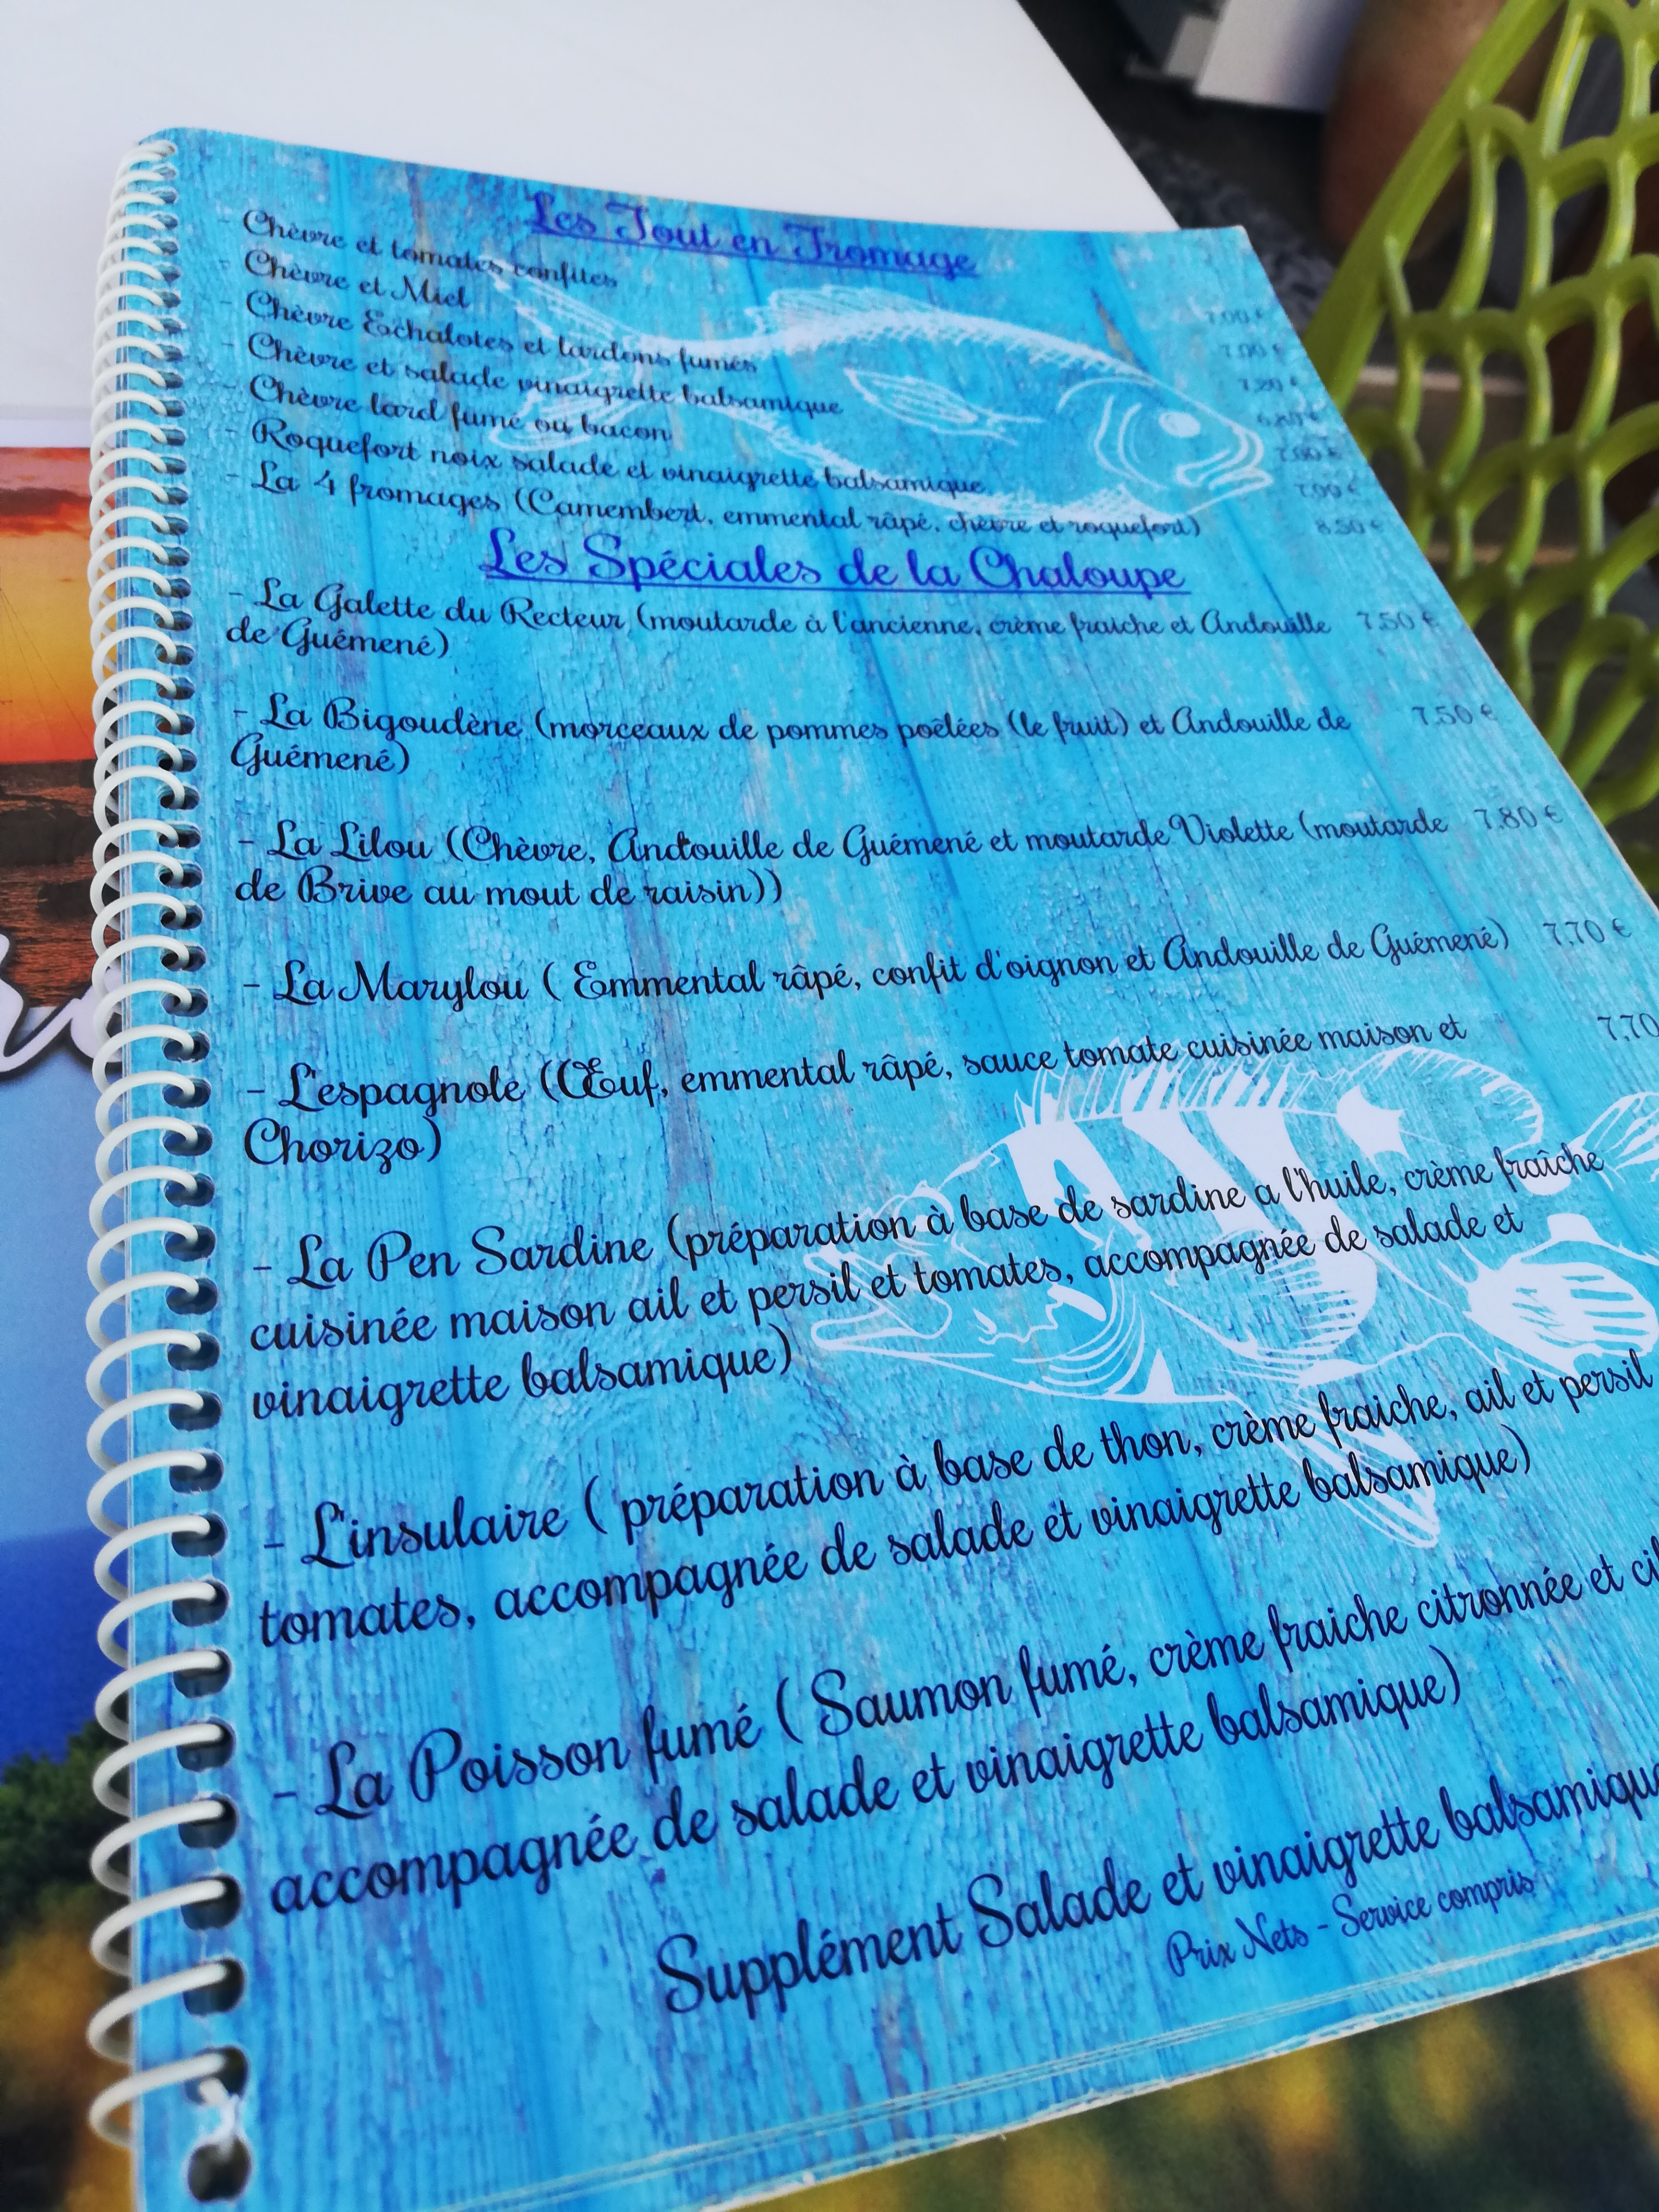 Les Tout en Fromage
- Chèvre et tomates confites 7.00 €
- Chèvre et Miel 7.00 €
- Chèvre Echalotes et lardons fumés 7,20 €
- Chèvre et salade vinaigrette balsamique 6.80 €
- Chèvre lard fumé ou bacon
- Roquefort noix salade et vinaigrette balsamique
- La 4 fromages (Camembert, emmental râpé, chèvre et roquefort) 8.50 €
Les Spéciales de la Chaloupe
- La Galette du Recteur (moutarde à l'ancienne, crème fraiche et Andouille 7.50 €
de Guémené)
- La Bigoudène (morceaux de pommes poêlées (le fruit) et Andouille de 7.50 €
Guémené)
- La Lilou (Chèvre, Andouille de Guémené et moutarde Violette (moutarde 7.80 €
de Brive au mout de raisin))
- La Marylou ( Emmental râpé, confit d'oignon et Andouille de Guémené) 7,70 €
- L'espagnole (Œuf, emmental râpé, sauce tomate cuisinée maison et 7,70
Chorizo)
- La Pen Sardine (préparation à base de sardine a l'huile, crème fraîche
cuisinée maison ail et persil et tomates, accompagnée de salade et
vinaigrette balsamique)
- L'insulaire ( préparation à base de thon, crème fraiche, ail et persil
tomates, accompagnée de salade et vinaigrette balsamique)
- La Poisson fumé ( Saumon fumé, crème fraiche citronnée et
accompagnée de salade et vinaigrette balsamique)
Supplément Salade et vinaigrette balsamique
Prix Nets - Service compris